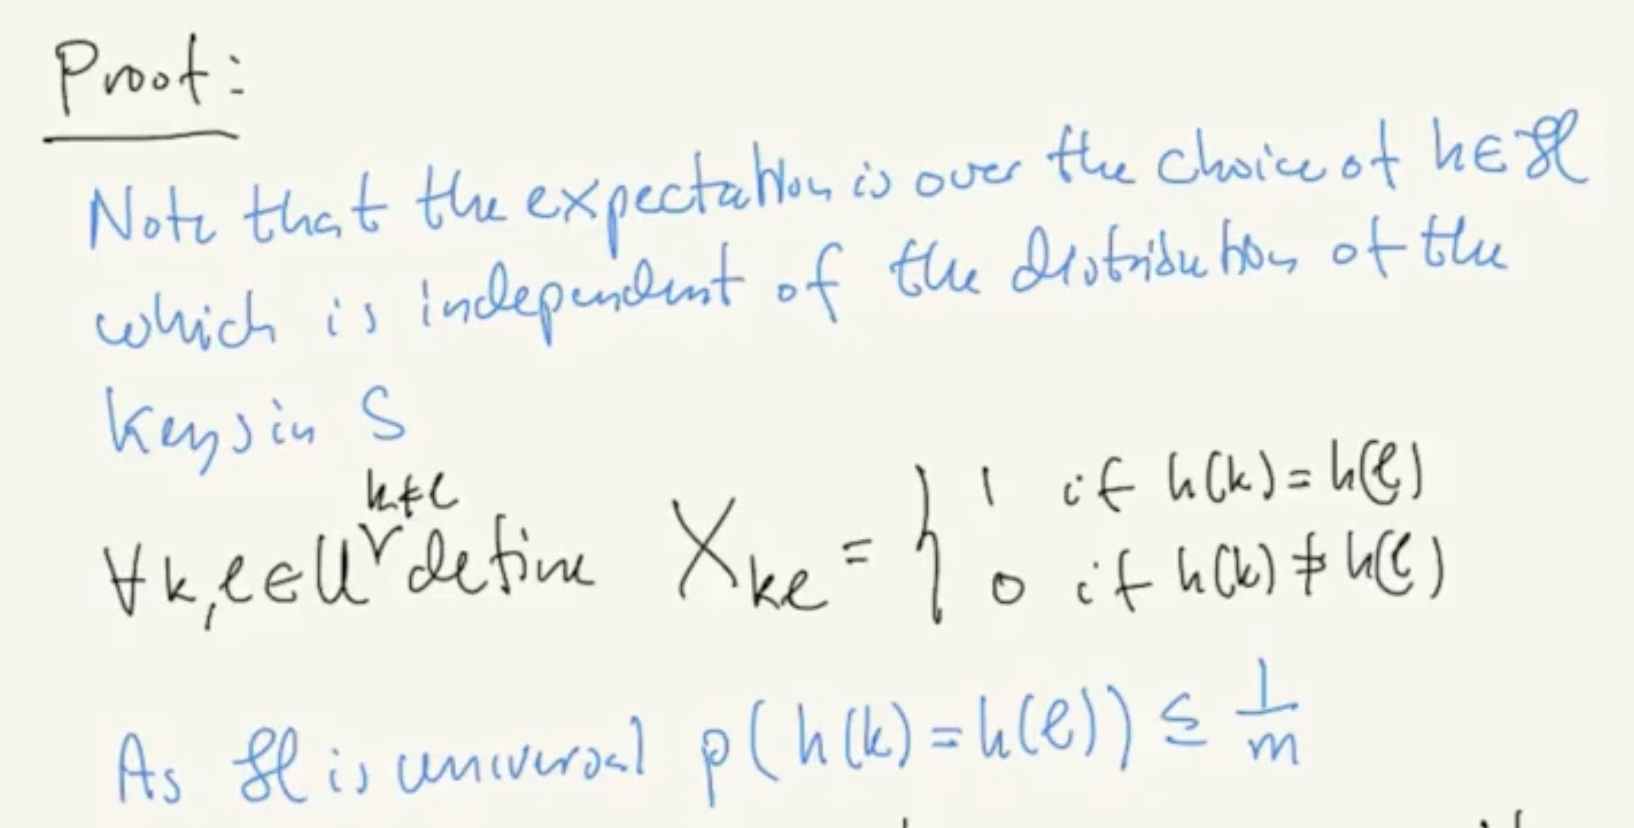 Proof:
Note that the expectation is over the choice of h∈ℋ
which is independent of the distribution of the
keys in S
k≠ℓ
∀k,ℓ∈U define X_kℓ = { 1 if h(k)=h(ℓ)
0 if h(k)≠h(ℓ)
As ℋ is universal p(h(k)=h(ℓ)) ≤ 1/m